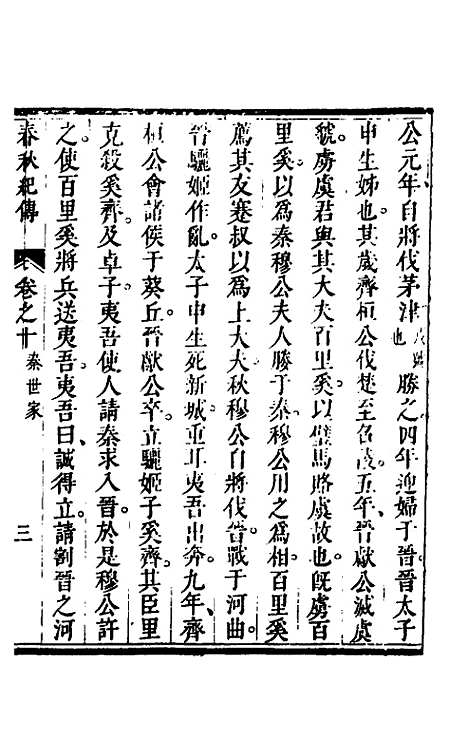 公元年自將伐茅津也勝之四年迎婦于晉晉太子
申生姊也其歲齊桓公伐楚至邵陵五年晉獻公滅虞
虢虜虞君與其大夫百里奚以璧馬賂虞故也既虜百
里奚以爲秦穆公夫人勝于秦穆公用之爲相百里奚
薦其友蹇叔以爲上大夫秋穆公自將伐晉戰于河曲
晉驪姬作亂太子申生死新城重耳夷吾出奔九年齊
桓公會諸侯于葵丘晉獻公卒立驪姬子奚齊其臣里
克殺奚齊及卓子夷吾使人請秦求入晉於是穆公許
之使百里奚將兵送夷吾夷吾曰誠得立請割晉之河
春秋紀傳
卷之十
秦世家
三